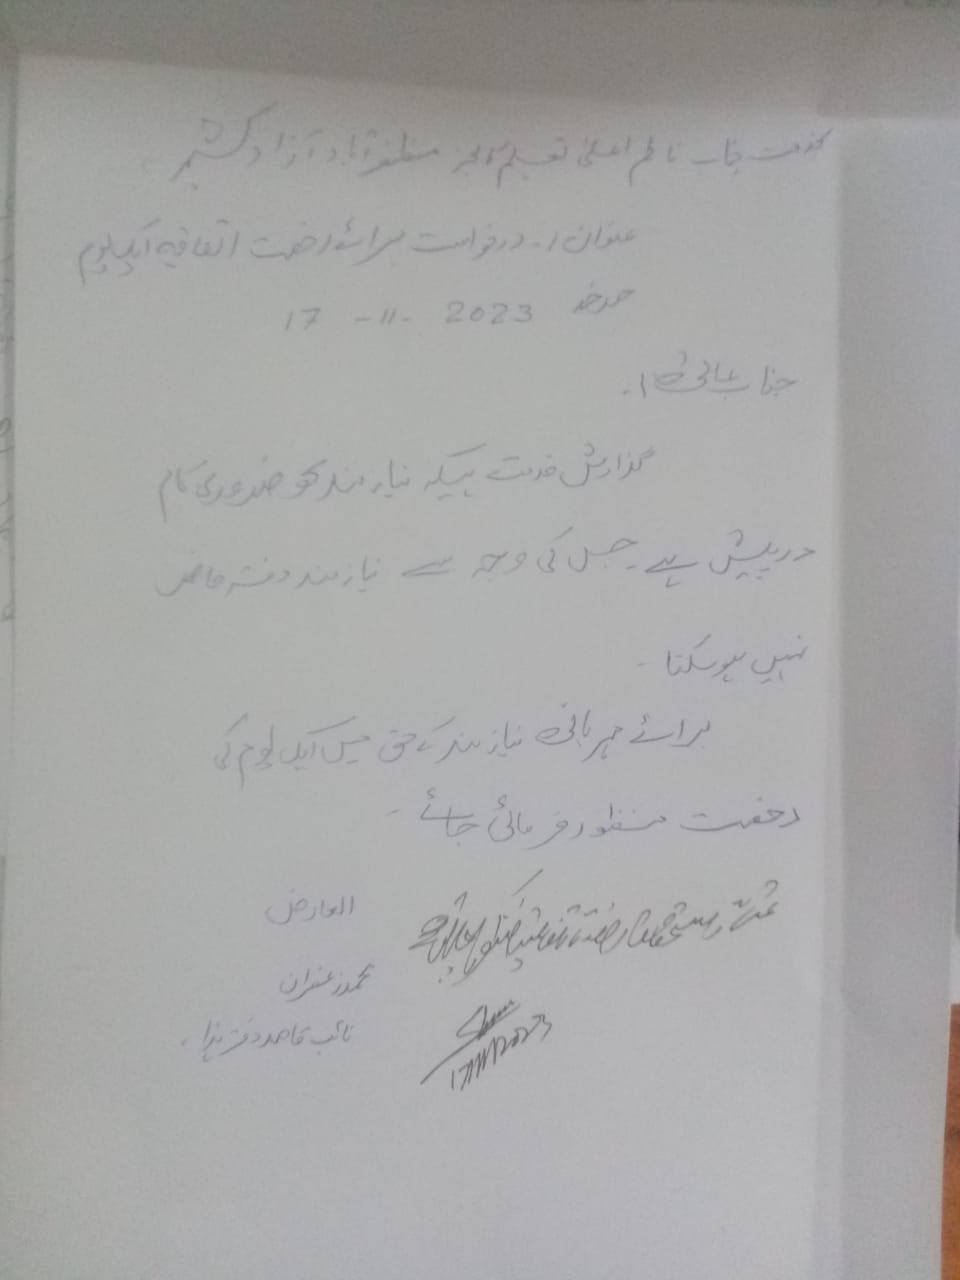 بخدمت جناب ناظم اعلیٰ تعلیم کالجز مظفرآباد آزاد کشمیر
عنوان :۔ درخواست برائے رخصت اتفاقیہ ایک یوم
مورخہ 17 -11- 2023
جناب عالی :۔
گذارش خدمت ہیکہ نیازمند کو ضروری کام
درپیش ہے۔ جس کی وجہ سے نیازمند دفتر حاضر
نہیں ہوسکتا ۔
برائے مہربانی نیازمند کے حق میں ایک یوم کی
رخصت منظور فرمائی جائے ۔
العارض
محمد زعفران
نائب قاصد دفتر ہذا ۔
17/11/2023